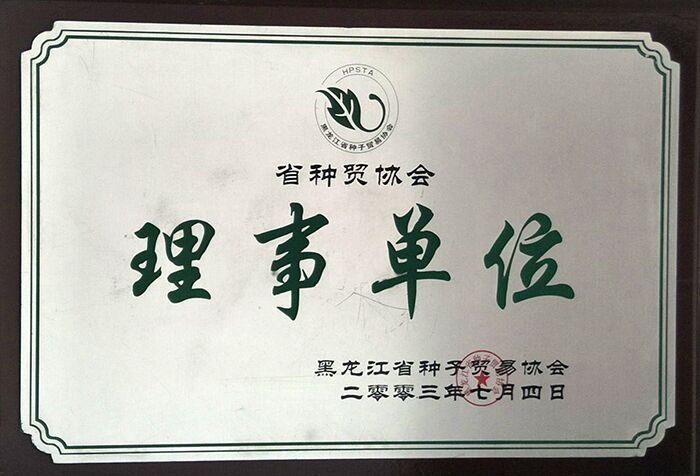 HPSTA
黑龙江省种子贸易协会
省种贸协会
理事单位
黑龙江省种子贸易协会
二零零三年七月四日